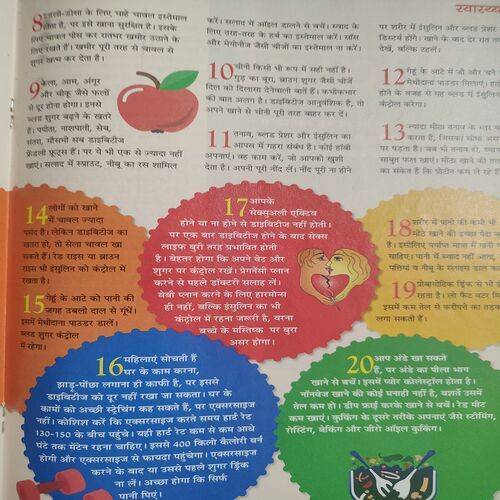 स्वास्थ्य
8 इडली-डोसा के लिए चाहे चावल इस्तेमाल
होता है, पर इसे खाना सुरक्षित है। इसके
लिए चावल पीस कर रातभर खमीर उठाने के
लिए रखते हैं। खमीर पूरी तरह से चावल से
शुगर खत्म कर देता है।
9 केला, आम, अंगूर
और चीकू जैसे फलों
से दूर होना होगा। इनसे
ब्लड शुगर बढ़ने के खतरे
हैं। पपीता, नाशपाती, सेब,
संतरा, मौसमी सब डाइबिटीज
फ्रेंडली फ्रूट्स हैं। पर ये भी एक से ज्यादा नहीं
खाएं। सलाद में स्प्राउट, नीबू का रस शामिल
करें। सलाद में ऑइल डालने से बचें। स्वाद के
लिए तरह-तरह के हर्ब्स का इस्तेमाल करें। सॉस
और मेयोनीज जैसी चीजों का इस्तेमाल ना करें।
10 चीनी किसी भी रूप में सही नहीं है।
गुड़ का बूरा, ब्राउन शुगर जैसी चीजें
दिल को दिलासा देनेवाली बातें हैं। कभीकभार
की बात अलग है। डाइबिटीज आनुवंशिक है, तो
अपने खाने से चीनी पूरी तरह बाहर कर दें।
11 तनाव, ब्लड प्रेशर और इंसुलिन का
आपस में गहरा संबंध है। कोई हॉबी
अपनाएं। वह काम करें, जो आपको खुशी
देता है। अपनी पूरी नींद लें। नींद पूरी ना होने
पर शरीर में इंसुलिन और ब्लड प्रेशर
डिस्टर्ब होंगे। खाने के बाद देर रात तक
देखें, बल्कि टहलें।
12 गेहूं के आटे में जौ और चने
मेथीदाना पाउडर मिलाएं। हाई
होने के वजह से यह ब्लड में इंसुलिन
कंट्रोल करेगा।
13 ज्यादा मीठा तनाव के स्तर
करता है, जिसका सीधा असर
पर पड़ता है। जब भी तनाव हो,
साबुत फल खाएं। मीठा खाने की
का संकेत है कि प्रोटीन कम ले रहे हैं।
14 लोगों को खाने
में चावल ज्यादा
पसंद है। लेकिन डाइबिटीज का
खतरा हो, तो सेला चावल खा
सकते हैं। रेड राइस या ब्राउन
राइस भी इंसुलिन को कंट्रोल में
रखता है।
15 गेहूं के आटे को पानी की
जगह उबली दाल से गूंधें।
इसमें मेथीदाना पाउडर डालें।
ब्लड शुगर कंट्रोल
में रहेगा।
17 आपके
सेक्सुअली एक्टिव
होने या ना होने से डाइबिटीज नहीं होती।
पर एक बार डाइबिटीज होने के बाद सेक्स
लाइफ बुरी तरह प्रभावित होती
है। बेहतर होगा कि अपने वेट और
शुगर पर कंट्रोल रखें। प्रेगनेंसी प्लान
करने से पहले डॉक्टरी सलाह लें।
बेबी प्लान करने के लिए हारमोन्स
ही नहीं, बल्कि इंसुलिन का भी
कंट्रोल में रहना जरूरी है, वरना
बच्चे के मस्तिष्क पर बुरा
असर होगा।
18 शरीर में पानी की कमी भी
मीठे खाने की इच्छा पैदा
है। इसीलिए पर्याप्त मात्रा में पानी
चाहिए। पानी में स्वाद नहीं आता,
पत्तियां व नीबू के स्लाइस डाल कर
19 प्रोबायोटिक ड्रिंक से भी
रहता है। लो फैट बटर
इसमें कम तेल से करीपत्ते का तड़का
लगा सकती हैं।
16 महिलाएं सोचती हैं
घर के काम करना,
झाड़ू-पोंछा लगाना ही काफी है, पर इससे
डाइबिटीज को दूर नहीं रखा जा सकता। घर के
कामों को अच्छी स्ट्रेचिंग कह सकते हैं, पर एक्सरसाइज
नहीं। कोशिश करें कि एक्सरसाइज करते समय हार्ट रेट
130-150 के बीच पहुंचे। यही हार्ट रेट कम से कम आधे
घंटे तक मेंटेन रहना चाहिए। इससे 400 किलो कैलोरी बर्न
होगी और एक्सरसाइज से फायदा पहुंचेगा। एक्सरसाइज
करने के बाद या उससे पहले शुगर ड्रिंक
ना लें। अच्छा होगा कि सिर्फ
पानी पिएं।
20 आप अंडे खा सकते
हैं, पर अंडे का पीला भाग
खाने से बचें। इसमें प्योर कोलेस्ट्रॉल होता है।
नॉनवेज खाने की कोई मनाही नहीं है, बशर्ते उसमें
तेल कम हो। डीप फ्राई करके खाने से बचें। रेड मीट
कम खाएं। कुकिंग के दूसरे तरीके अपनाएं जैसे स्टीमिंग,
रोस्टिंग, बेकिंग और जीरो ऑइल कुकिंग।